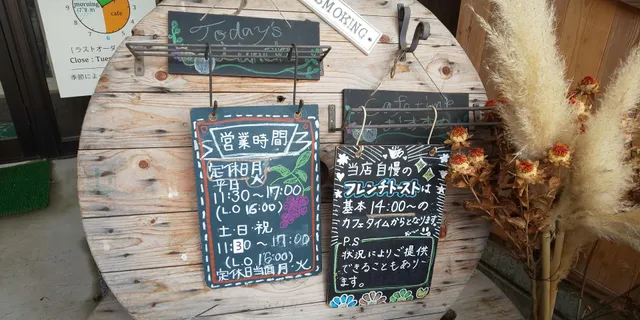 morning
cafe
[ラストオーダ
Close : Tues
季節によ
SMOKING.
Today's
営業時間
定休日 月 火
平日
11:30 ~ 17:00
(L.O 16:00)
土・日・祝
11:30 ~ 17:00
(L.O 16:00)
定休日 当面 月・火
当店自慢の
フレンチトーストは
基本 14:00~の
カフェタイムからとなります
P.S
状況によりご提供
できることもあり
ます。